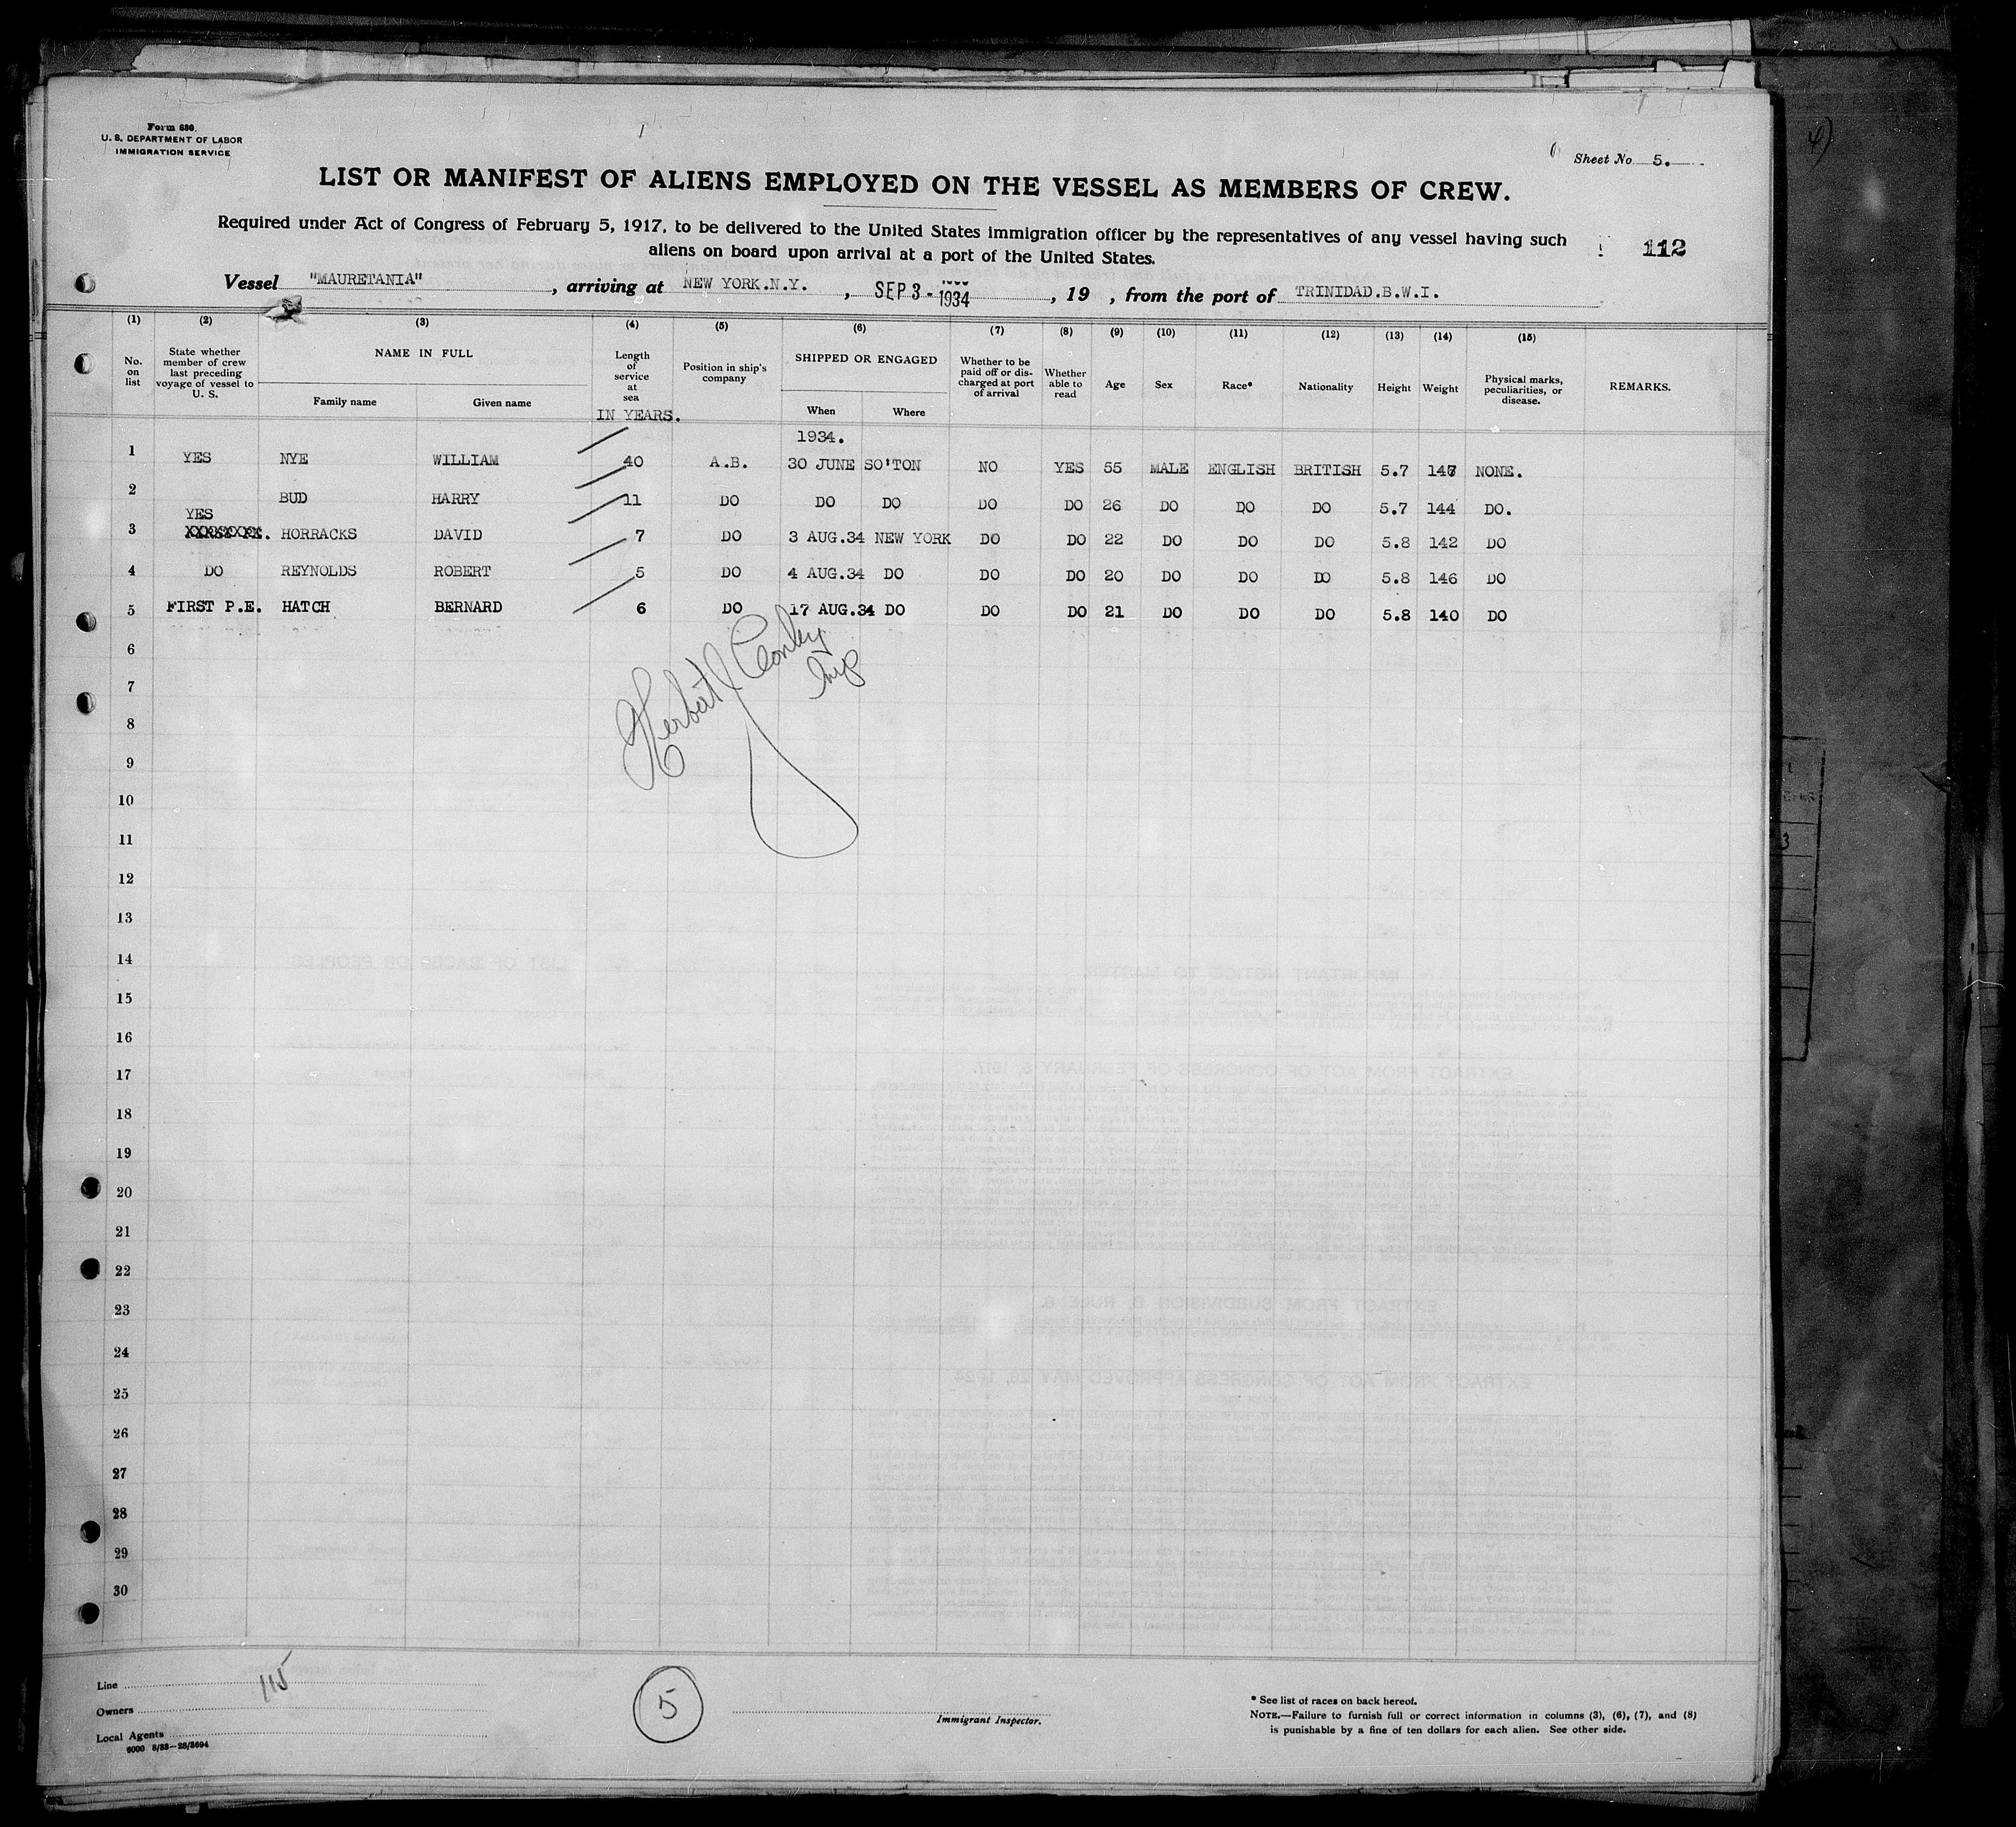 Form 680.
U. S. DEPARTMENT OF LABOR
IMMIGRATION SERVICE
Sheet No. 5.
LIST OR MANIFEST OF ALIENS EMPLOYED ON THE VESSEL AS MEMBERS OF CREW.
Required under Act of Congress of February 5, 1917, to be delivered to the United States immigration officer by the representatives of any vessel having such
aliens on board upon arrival at a port of the United States.
112
Vessel "MAURETANIA", arriving at NEW YORK.N.Y., SEP 3 - 1934, 19 , from the port of TRINIDAD.B.W.I.
(1) (2) (3) (4) (5) (6) (7) (8) (9) (10) (11) (12) (13) (14) (15)
No. on list State whether member of crew last preceding voyage of vessel to U. S. NAME IN FULL Family name Given name Length of service at sea IN YEARS. Position in ship's company SHIPPED OR ENGAGED When Where Whether to be paid off or discharged at port of arrival Whether able to read Age Sex Race* Nationality Height Weight Physical marks, peculiarities, or disease. REMARKS.
1934.
1 YES NYE WILLIAM 40 A.B. 30 JUNE SO'TON NO YES 55 MALE ENGLISH BRITISH 5.7 NONE.
2 BUD HARRY 11 DO DO DO DO DO 26 DO DO DO 5.7 144 DO.
YES
3 HORRACKS DAVID 7 DO 3 AUG.34 NEW YORK DO DO 22 DO DO DO 5.8 142 DO
4 DO REYNOLDS ROBERT 5 DO 4 AUG.34 DO DO DO 20 DO DO DO 5.8 146 DO
5 FIRST P.E. HATCH BERNARD 6 DO 17 AUG.34 DO DO DO 21 DO DO DO 5.8 140 DO
Herbert J Conley
Insp
6
7
8
9
10
11
12
13
14
15
16
17
18
19
20
21
22
23
24
25
26
27
28
29
30
Line 115
Owners
Local Agents
6000 8/33—28/3694
5
Immigrant Inspector.
* See list of races on back hereof.
NOTE.—Failure to furnish full or correct information in columns (3), (6), (7), and (8)
is punishable by a fine of ten dollars for each alien. See other side.